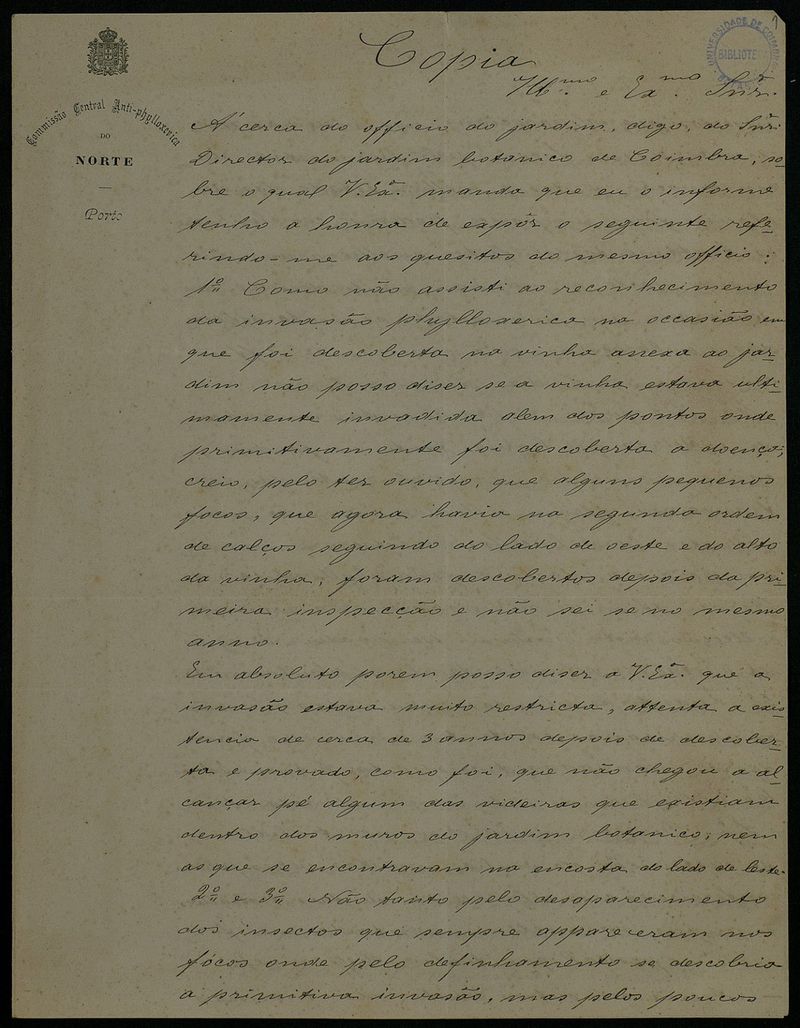 Copia
UNIVERSIDADE DE COIMBRA
BIBLIOTE
Commissão Central Anti-phylloxerica
DO
NORTE
Porto
Ill.mo e Ex.mo Snr.
Á cerca do officio do jardim, digo, do Snr.
Director do jardim botanico de Coimbra, so-
bre o qual V. Exª. manda que eu o informe
tenho a honra de expôr o seguinte refe-
rindo-me aos quesitos do mesmo officio:
1º Como não assisti ao reconhecimento
da invasão phylloxerica na occasião em
que foi descoberta na vinha anexa ao jar-
dim não posso diser se a vinha estava ulti-
mamente invadida alem dos pontos onde
primitivamente foi descoberta a doença;
creio, pelo ter ouvido, que alguns pequenos
focos, que agora havia na segunda ordem
de calços seguindo do lado de oeste e do alto
da vinha, foram descobertos depois da pri-
meira inspecção e não sei se no mesmo
anno.
Em absoluto porem posso diser a V. Exª. que a
invasão estava muito restricta, attenta a exis-
tencia de cerca de 3 annos depois de descober-
ta e provado, como foi, que não chegou a al-
cançar pé algum das videiras que existiam
dentro dos muros do jardim botanico; nem
as que se encontravam na encosta do lado de leste.
2º e 3º Não tanto pelo desaparecimento
dos insectos que sempre appareceram nos
fócos onde pelo definhamento se descobrio
a primitiva invasão, mas pelos poucos